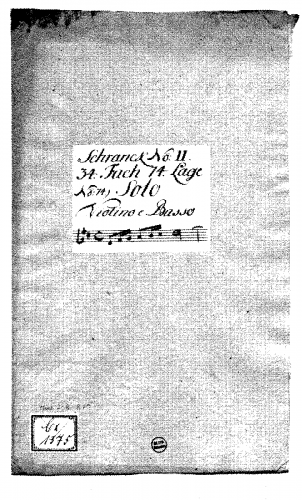 Schranck No: II.
34. Fach 74. Lage
No: 14) Solo
Violino e Basso
Cx
1375